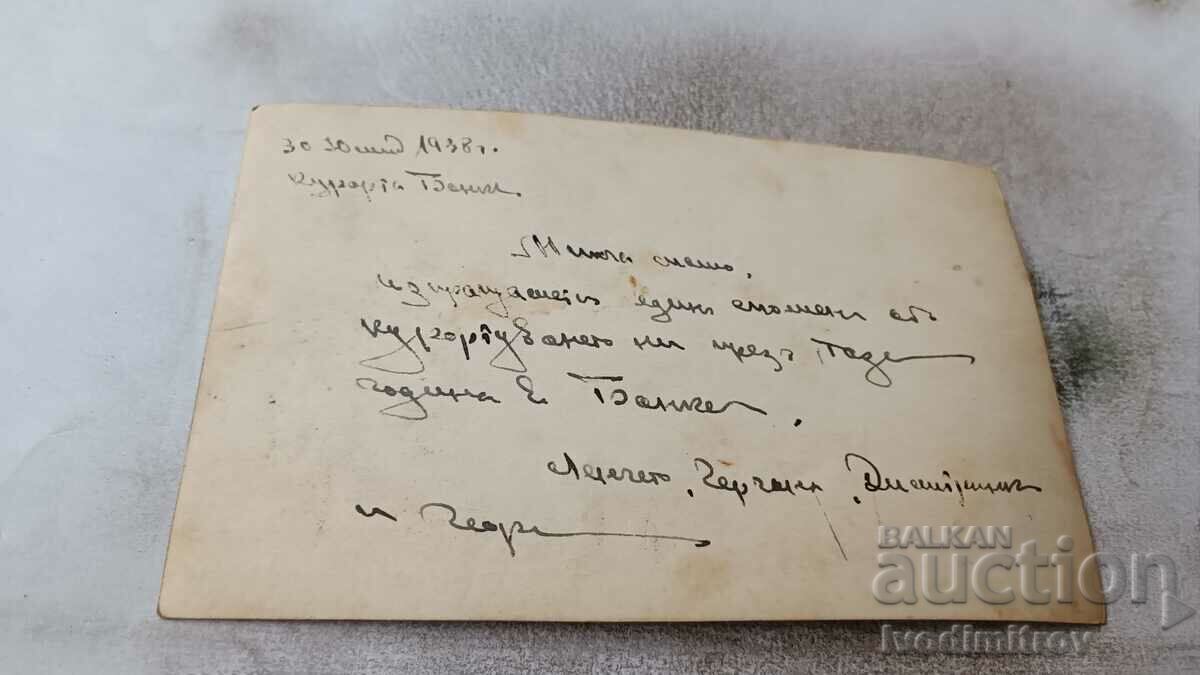 30 Юлий 1938 г.
курорта Банки.
изпращаме един спомен отъ
курортуването ни презъ тази
година в Банки.
Лечето, Гергана, Димитринка
и Георги
BALKAN
auction
Ivodimitrov